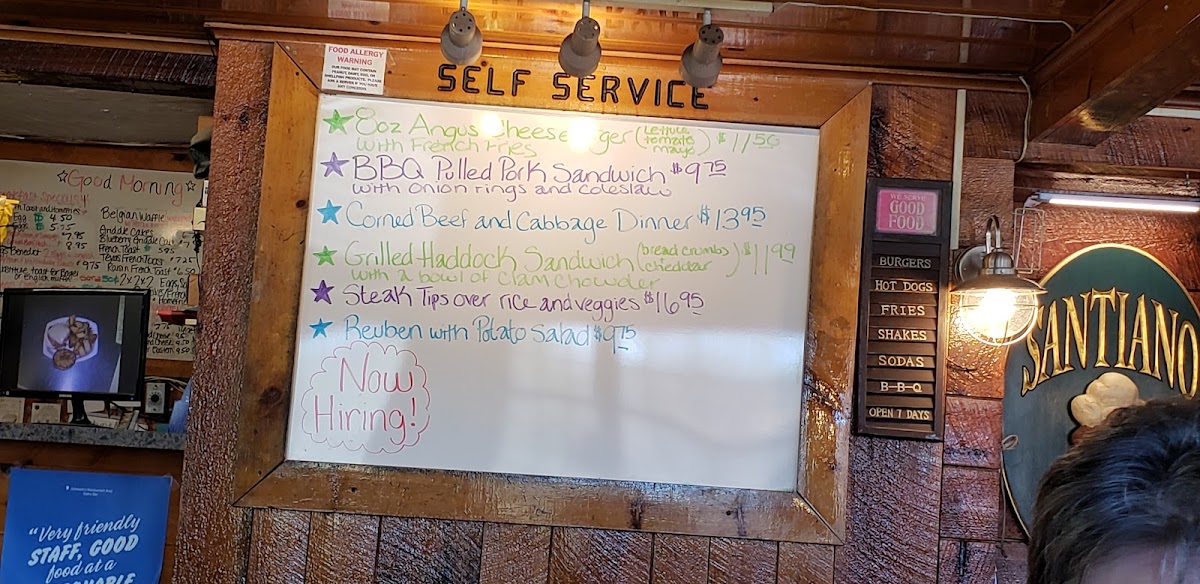 FOOD ALLERGY
WARNING
OUR FOOD MAY CONTAIN
SELF SERVICE
8oz Angus Cheeseburger (Lettuce tomato mayo) $11.50
with French Fries
BBQ Pulled Pork Sandwich $9.75
with onion rings and coleslaw
Corned Beef and Cabbage Dinner $13.95
Grilled Haddock Sandwich (bread crumbs cheddar) $11.99
with a bowl of Clam Chowder
Steak Tips over rice and veggies $16.95
Reuben with Potato Salad $9.75
Now
Hiring!
Good Morning
Belgian Waffle
French Toast
Texas French Toast
Raisin French Toast
WE SERVE
GOOD
FOOD
BURGERS
HOT DOGS
FRIES
SHAKES
SANDWICHES
SODAS
B-B-Q
OPEN 7 DAYS
SANTIANO
"Very friendly
STAFF, GOOD
food at a